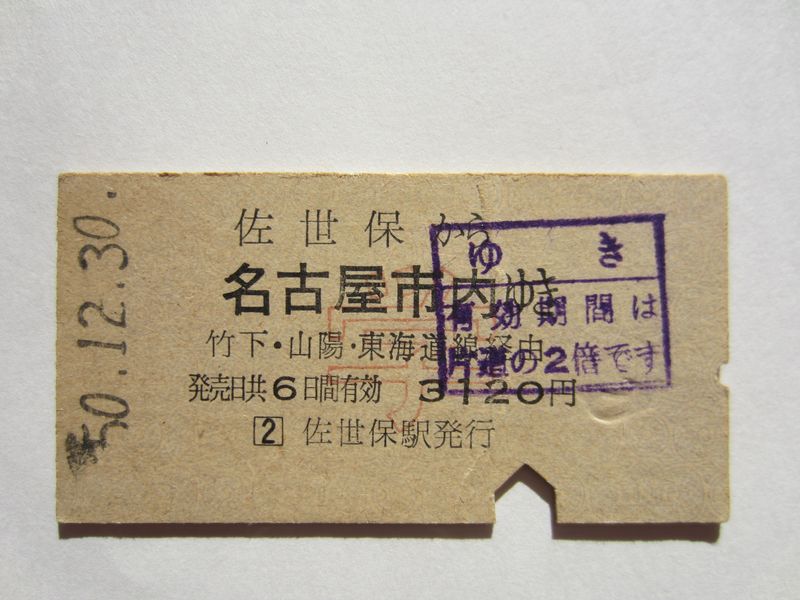 50.12.30.
佐世保から
名古屋市内ゆき
竹下・山陽・東海道線経由
発売日共6日間有効 3120円
2 佐世保駅発行
ゆき
有効期間は
片道の2倍です